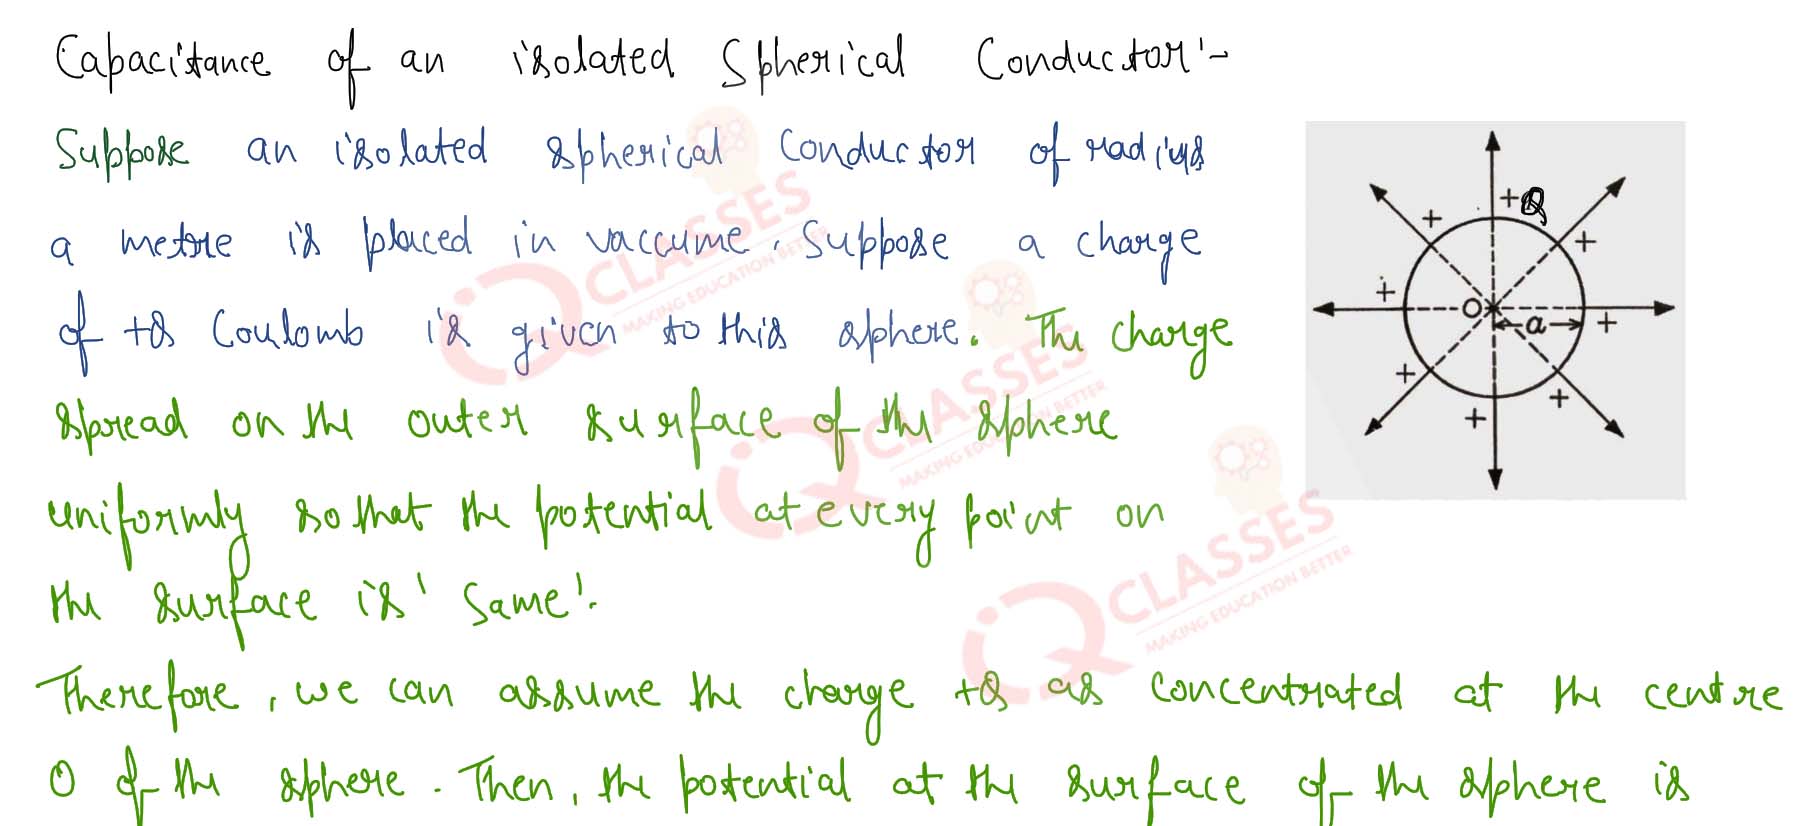 Capacitance of an isolated Spherical Conductor :-
Suppose an isolated spherical conductor of radius
a metre is placed in vaccume. Suppose a charge
of +Q Coulomb is given to this sphere. The charge
spread on the outer surface of the sphere
uniformly so that the potential at every point on
the surface is same.
Therefore, we can assume the charge +Q as concentrated at the centre
O of the sphere. Then, the potential at the surface of the sphere is
+Q
+ +
+
O
a
+
+
+
+
iQ CLASSES
MAKING EDUCATION BETTER
iQ CLASSES
MAKING EDUCATION BETTER
iQ CLASSES
MAKING EDUCATION BETTER